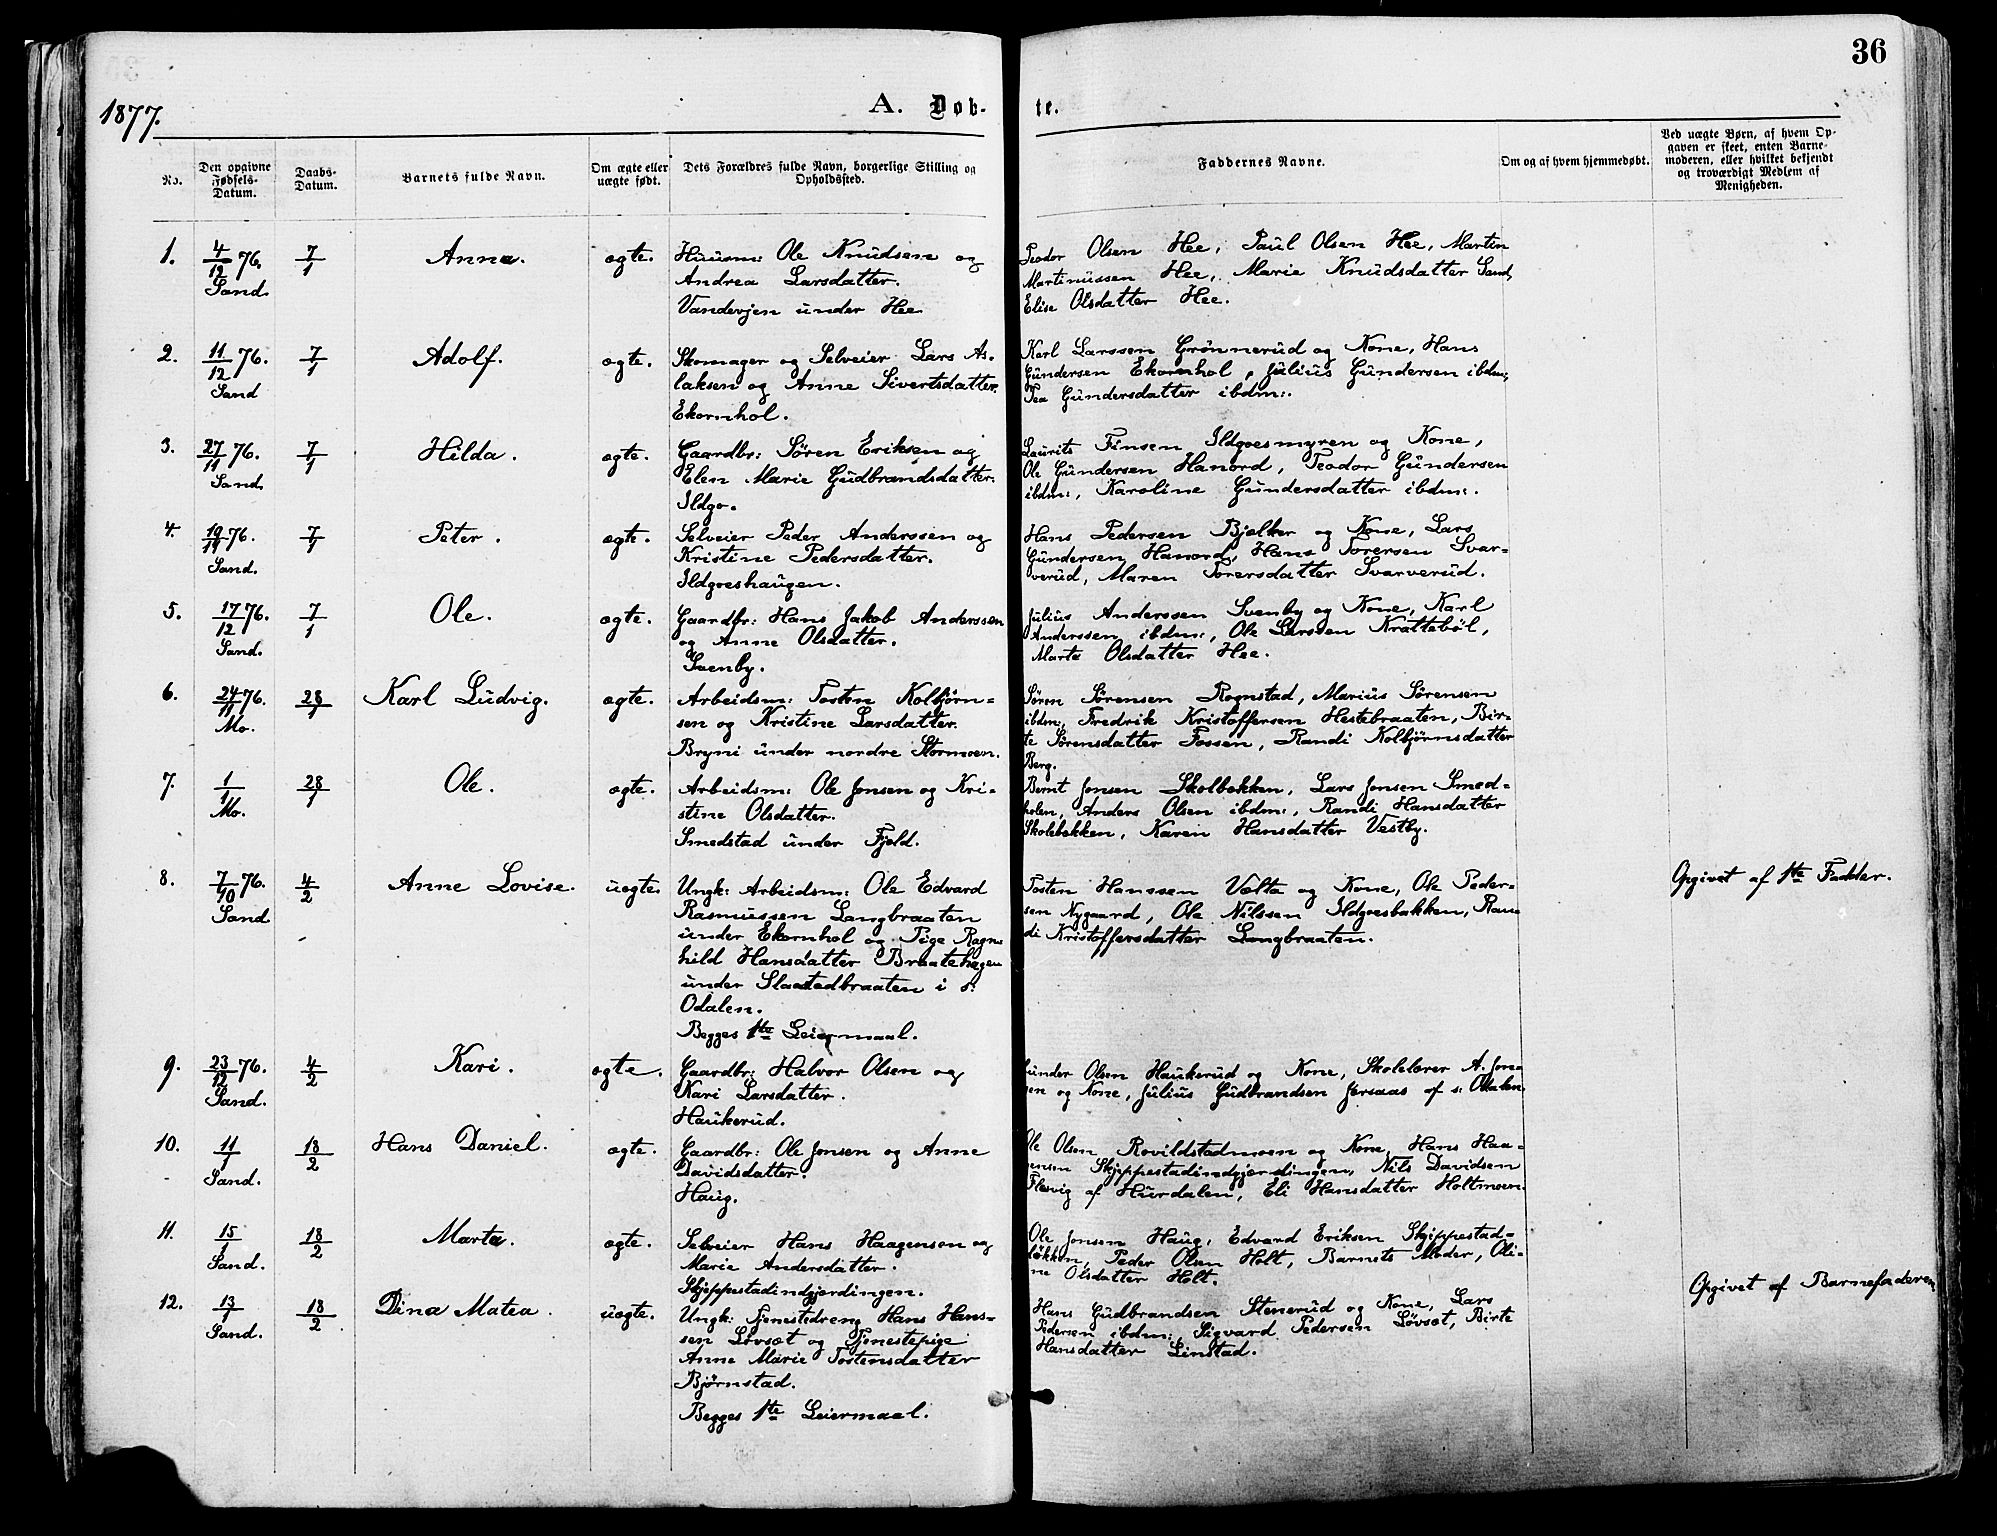 36
1877.
A. Døb-
te.
No.
Den opgivne
Fødsels-
Datum.
Daabs-
Datum.
Barnets fulde Navn.
Om ægte eller
uægte født.
Dets Forældres fulde Navn, borgerlige Stilling og
Opholdssted.
Faddernes Navne.
Om og af hvem hjemmedøbt.
Ved uægte Børn, af hvem Op-
gaven er skeet, enten Barne-
moderen, eller hvilket bekjendt
og troværdigt Medlem af
Menigheden.
1. 4/12 76. 7/1 Anna. ægte. Huusm: Ole Knudsen og
Sand. Andrea Larsdatter.
Vandevjen under Hee.
Teodor Olsen Hee, Paul Olsen Hee, Martin
Martinussen Hee, Marie Knudsdatter Sand,
Elise Olsdatter Hee.
2. 11/12 76. 7/1 Adolf. ægte. Skomager og Selveier Lars As-
Sand laksen og Anne Sivertsdatter.
Ekornhol.
Karl Larssen Grönnerud og Kone, Hans
Gundersen Ekornhol, Julius Gundersen ibdm:,
Tea Gundersdatter ibdm:.
3. 27/11 76. 7/1 Hilda. ægte. Gaardbr: Sören Eriksen og
Sand. Elen Marie Gudbrandsdatter.
Ildgo.
Laurits Finsen Ildgoesmyren og Kone,
Ole Gundersen Hanord, Teodor Gundersen
ibdm:, Karoline Gundersdatter ibdm:.
4. 19/11 76. 7/1 Peter. ægte. Selveier Peder Anderssen og
Sand. Kristine Pedersdatter.
Ildgoeshaugen.
Hans Pedersen Bjælker og Kone, Lars
Gundersen Hanord, Hans Torersen Svar-
verud, Maren Torersdatter Svarverud.
5. 17/12 76. 7/1 Ole. ægte. Gaardbr: Hans Jakob Anderssen
Sand. og Anne Olsdatter.
Svenby.
Julius Anderssen Svenby og Kone, Karl
Anderssen ibdm:, Ole Larssen Kratteböl,
Marta Olsdatter Hee.
6. 24/11 76. 28/1 Karl Ludvig. ægte. Arbeidsm: Tosten Kolbjörn-
Mo. sen og Kristine Larsdatter.
Bryni under nordre Stormoen.
Sören Sörensen Rognstad, Marius Sörensen
ibdm:, Fredrik Kristoffersen Hestebraaten, Bir-
te Sörensdatter Fossen, Randi Kolbjörnsdatter
Berg.
7. 1/1 28/1 Ole. ægte. Arbeidsm: Ole Jonsen og Kri-
Mo. stine Olsdatter.
Smedstad under Fjeld.
Bernt Jonsen Skolbækken, Lars Jonsen Smed-
holen, Anders Olsen ibdm:, Randi Hansdatter
Skolebækken, Karen Hansdatter Vestby.
8. 7/10 76. 4/2 Anne Lovise. uægte. Ungk: Arbeidsm: Ole Edvard
Sand Rasmussen Langbraaten
under Ekornhol og Pige Ragn-
hild Hansdatter Braatehagen
under Slaastadbraaten i s:
Odalen.
Begges 1ste Leiermaal.
Tosten Hanssen Vælta og Kone, Ole Peder-
sen Nygaard, Ole Nilssen Ildgoesbakken, Ran-
di Kristoffersdatter Langbraaten.
Opgivet af 1ste Fadder.
9. 23/12 76. 4/2 Kari. ægte. Gaardbr: Halvor Olsen og
Sand. Kari Larsdatter.
Haukerud.
Gunder Olsen Haukerud og Kone, Skolelærer A. Jon-
sen og Kone, Julius Gudbrandsen Jersaas af s: Odalen.
10. 11/1 18/2 Hans Daniel. ægte. Gaardbr: Ole Jonsen og Anne
Sand. Davidsdatter.
Haug.
Ole Olsen Rovildstadmoen og Kone, Hans Haa-
gensen Skjeppestadindgjærdingen, Nils Davidsen
Flesvig af Hurdalen, Eli Hansdatter Holtmoen.
11. 15/1 18/2 Marta. ægte. Selveier Hans Haagensen og
Sand. Marie Andersdatter.
Skjeppestadindgjerdingen.
Ole Jonsen Haug, Edvard Eriksen Skjeppestad-
løkken, Peder Olsen Holt, Barnets Moder, Oli-
ne Olsdatter Holt.
12. 13/1 18/2 Dina Matea. uægte. Ungk: Tjenestedreng Hans Hans-
Sand. sen Lövsæt og Tjenestepige
Anne Marie Tostensdatter
Björnstad.
Begges 1ste Leiermaal.
Hans Gudbrandsen Stenerud og Kone, Lars
Pedersen ibdm:, Sigvard Pedersen Lövsæt, Birte
Hansdatter Linstad.
Opgivet af Barnefaderen